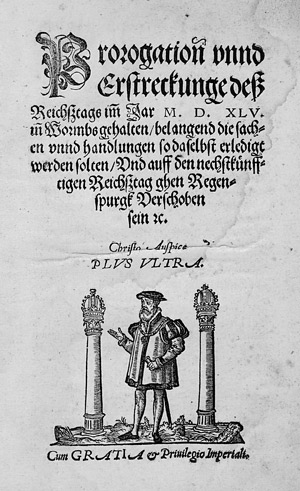 Prorogation vnnd
Erstreckunge deß
Reichßtags im Jar M. D. XLV.
in Wormbs gehalten / belangend die sach-
en vnnd handlungen so daselbst erledigt
werden solten / Vnd auff den nechstkünff-
tigen Reichßtag ghen Regen-
spurgk Verschoben
sein ꝛc.
Christo Auspice
PLVS VLTRA.
Cum GRATIA & Priuilegio Imperiali.